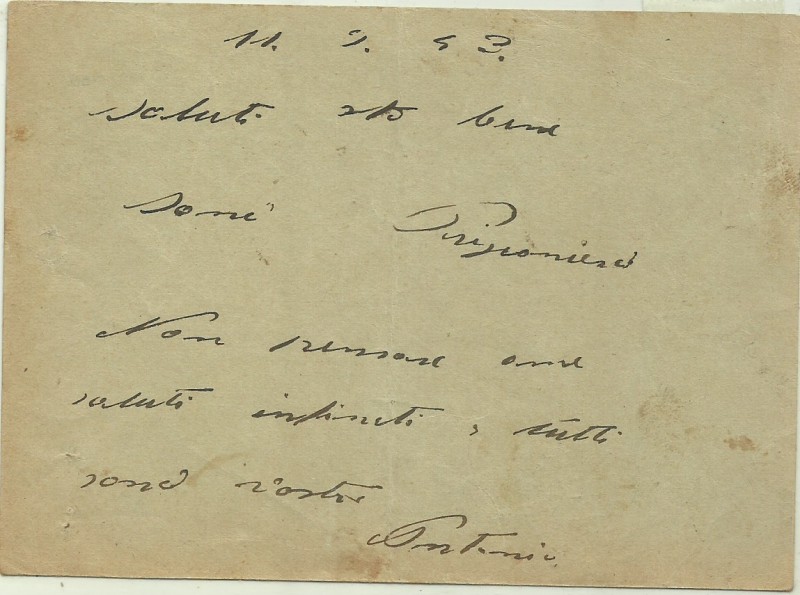 11. 9. 43.
saluti sto bene
sono Prigioniero
Non pensare ame
saluti infiniti a tutti
sono vostro
Antonio